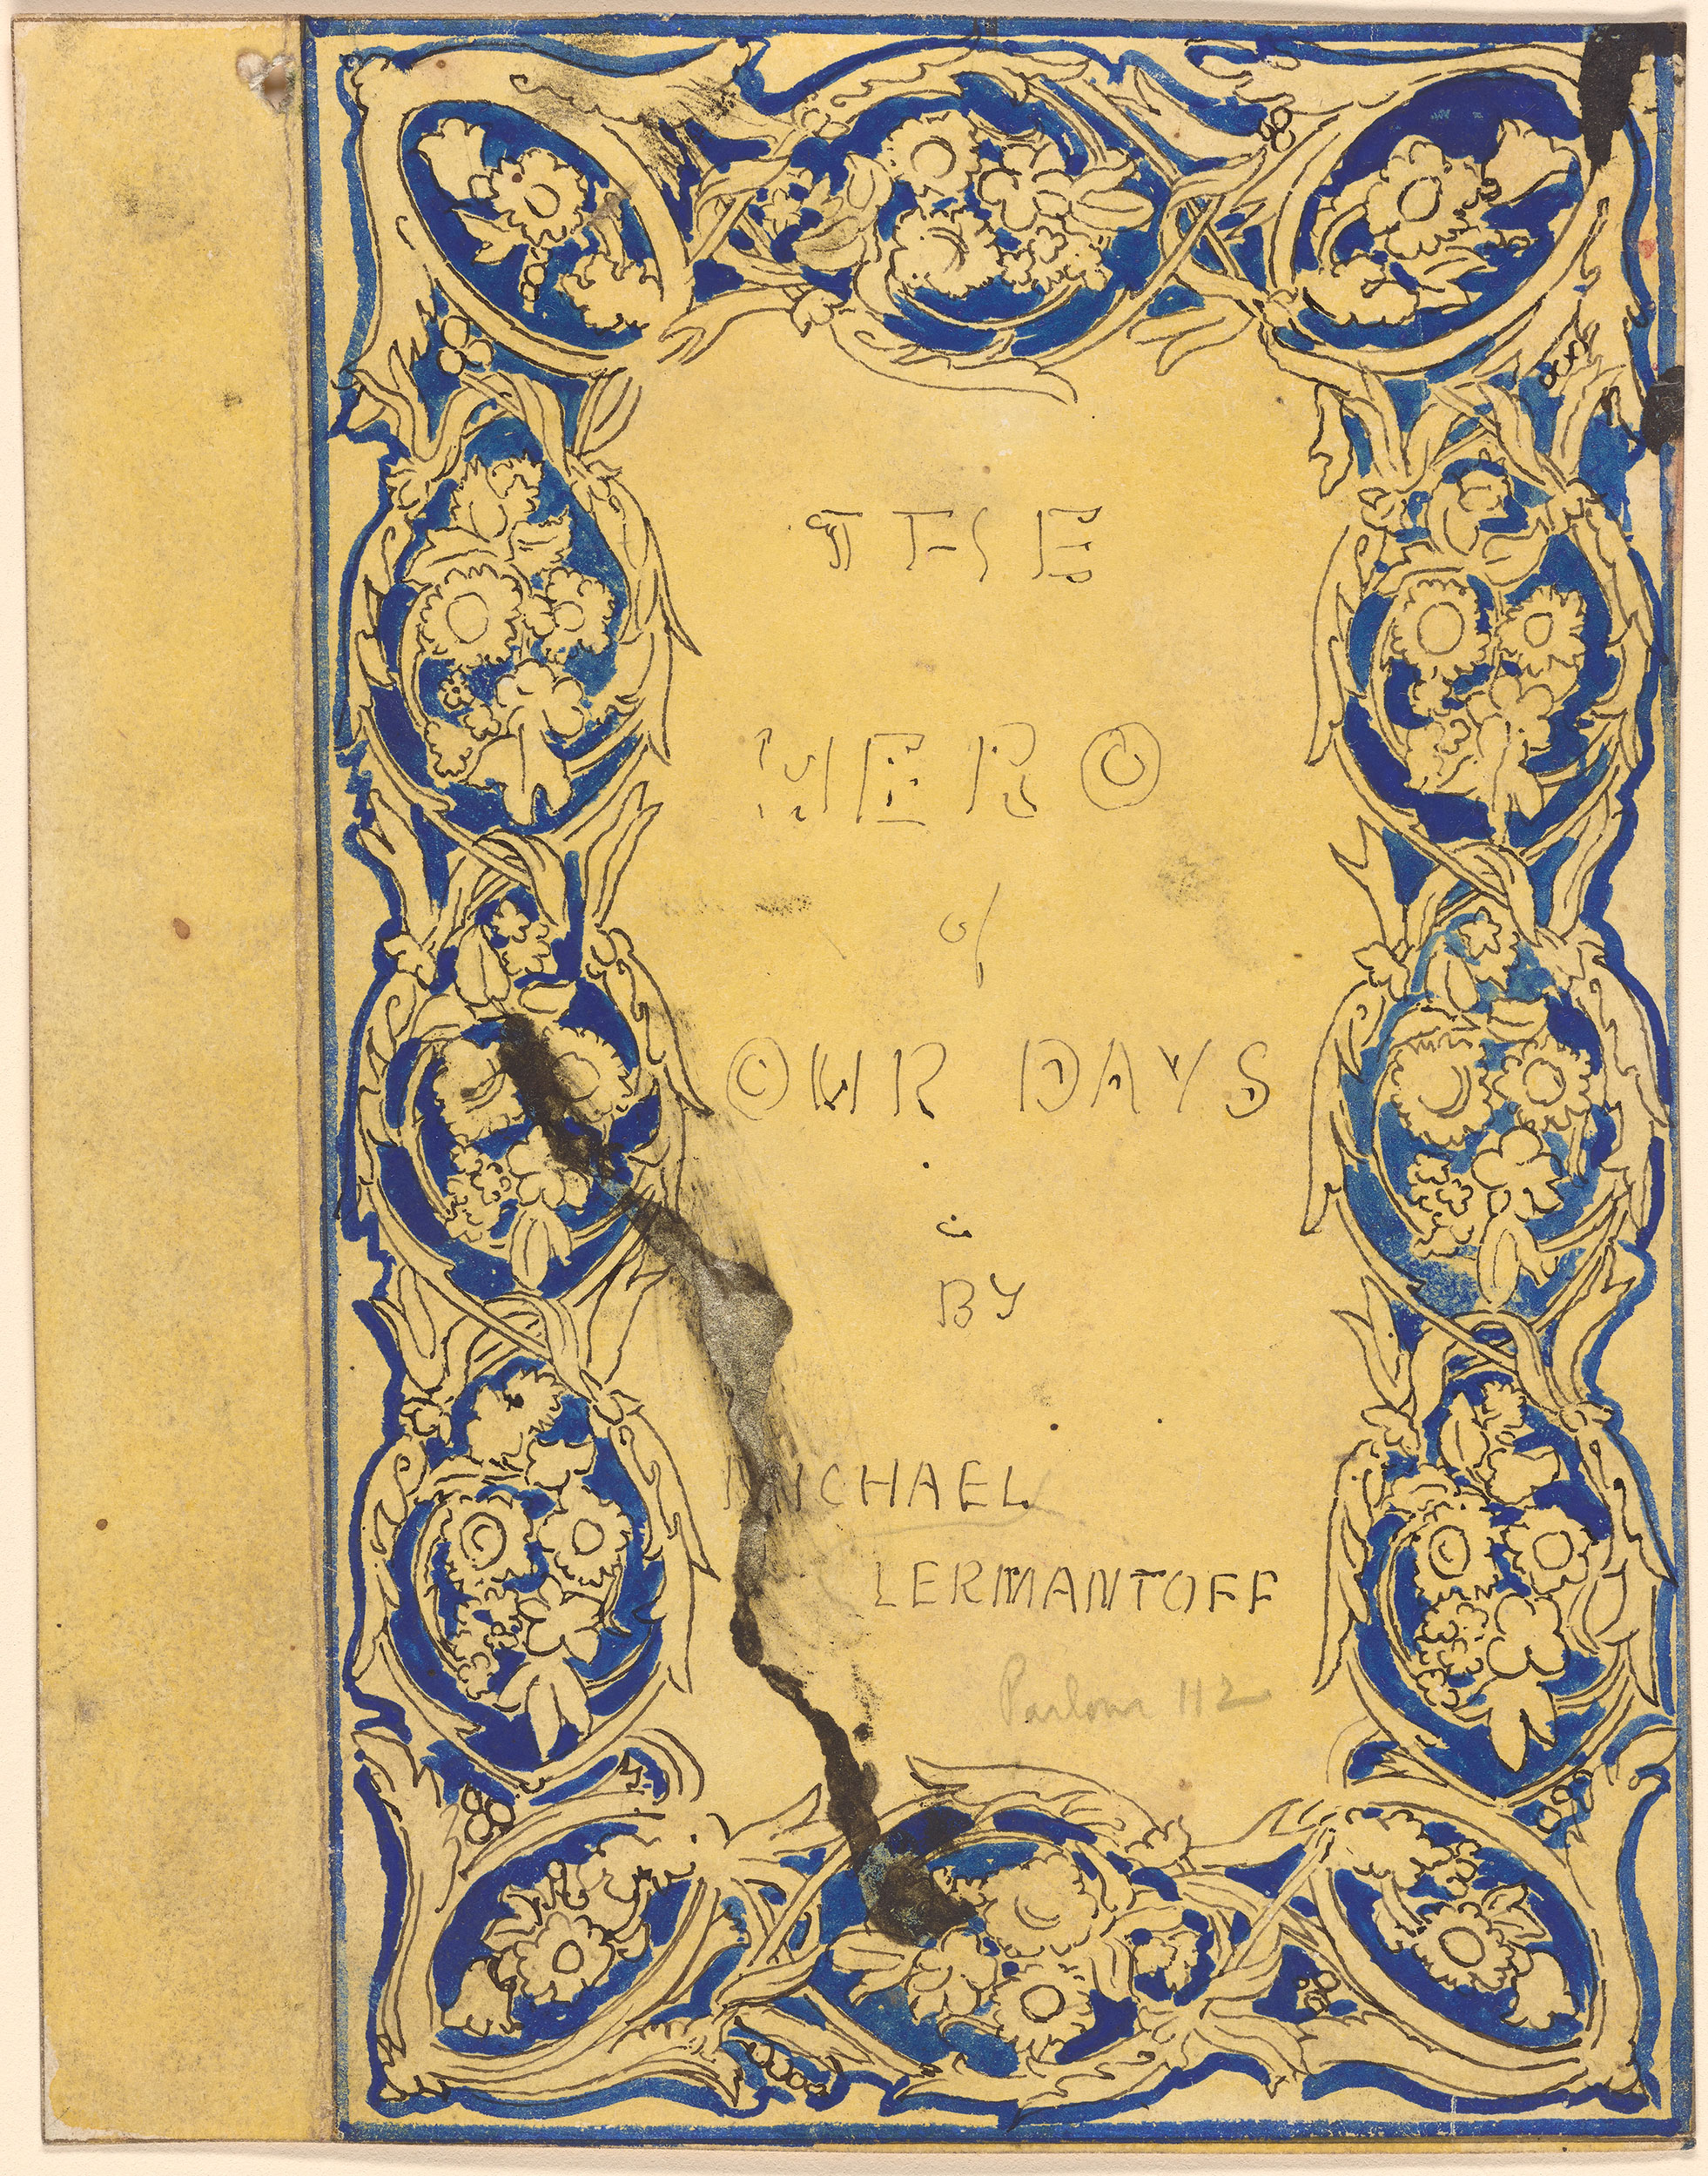 THE
HERO
of
OUR DAYS
BY
MICHAEL
LERMANTOFF
Parlour 112